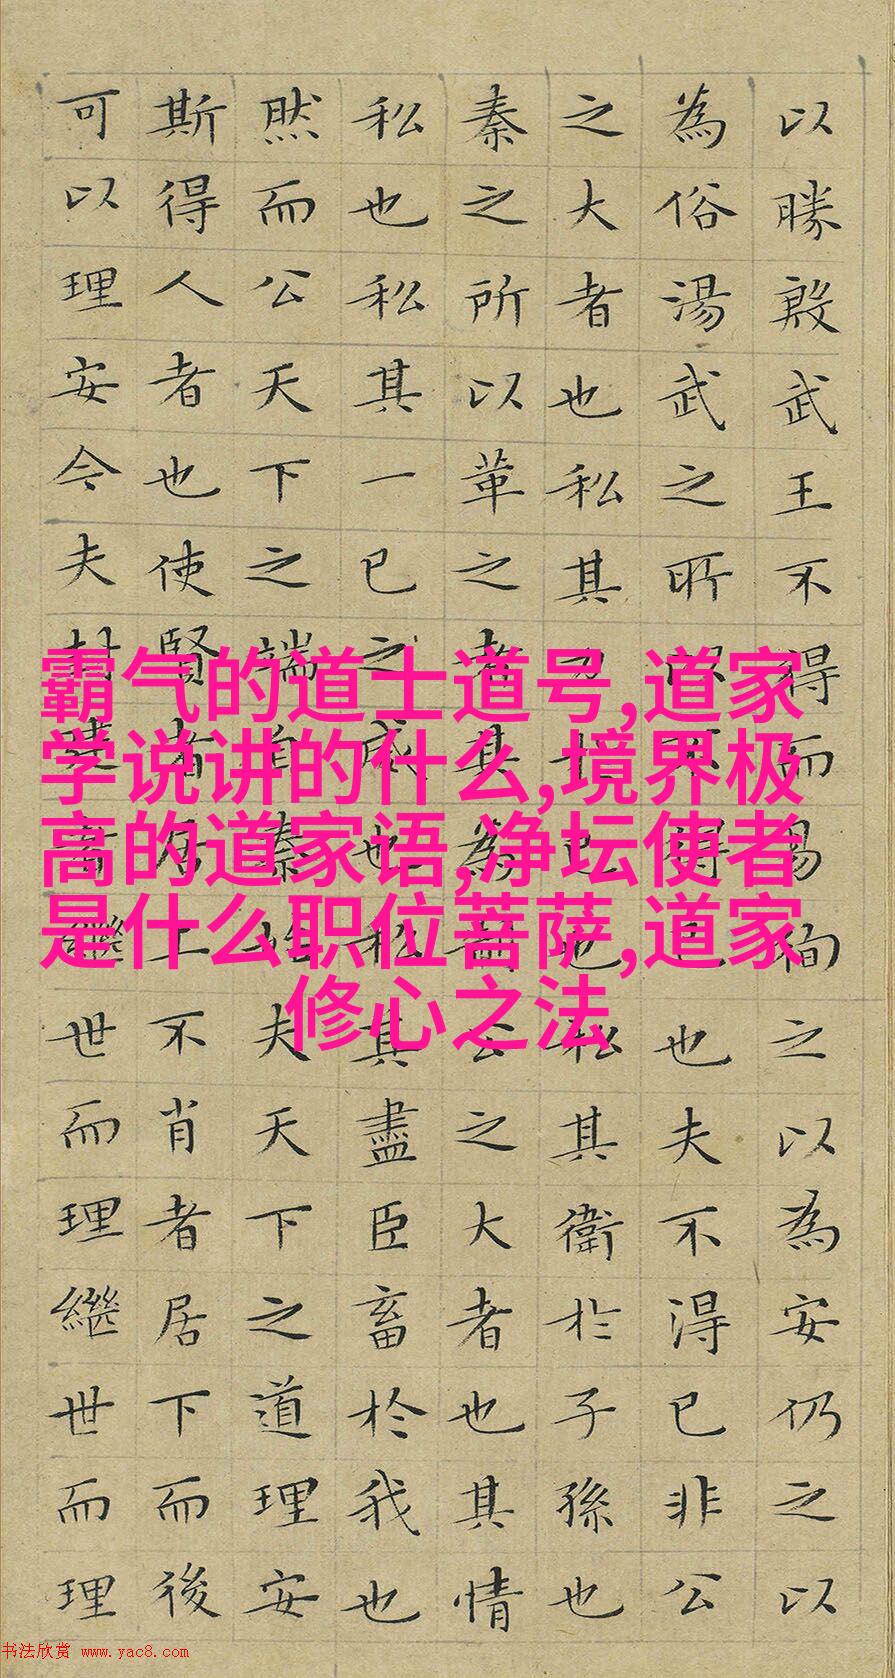 以勝殷武王不得而易徇之以為安仍之以
為俗湯武之所以不得已也夫不得已非公
之大者也私其力於已也私其衛於子孫也
秦之所以革之者其為制公之大者也其情
私也私其一已之威也私其盡臣畜於我也
然而公天下之端自秦始夫天下之道理安
斯得人者也使賢者居上不肖者居下而後
可以理安今夫封建者繼世而理繼世而理
霸气的道士道号,道家
学说讲的什么,境界极
高的道家语,净坛使者
是什么职位菩萨,道家
修心之法
书法欣赏 www.yac8.com